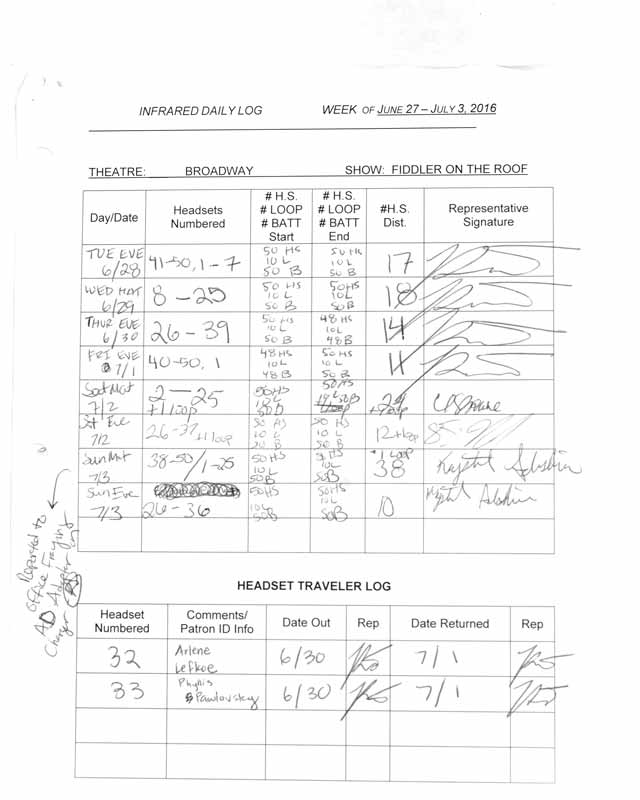 INFRARED DAILY LOG WEEK OF JUNE 27 – JULY 3, 2016
THEATRE: BROADWAY SHOW: FIDDLER ON THE ROOF
Day/Date Headsets Numbered # H.S. # LOOP # BATT Start # H.S. # LOOP # BATT End #H.S. Dist. Representative Signature
TUE EVE 6/28 41-50, 1-7 50 HS 10 L 50 B 50 HS 10 L 50 B 17
WED MAT 6/29 8-25 50 HS 10 L 50 B 50 HS 10L 50 B 18
THUR EVE 6/30 26-39 50 HS 10 L 50 B 48 HS 10L 48 B 14
FRI EVE 7/1 40-50, 1 48 HS 10 L 48 B 50 HS 10 L 50 B
Sat Mat 7/2 2-25 +1 loop 50 HS 10L 50B 50 HS
Sat Eve 7/2 26-37 +1 loop 50 HS 10 L 50 B 50 HS 10 L 50 B 12 + loop
Sun Mat 7/3 38-50/1-25 50 HS 10L 50B HS 10L 50B +1 loop 38 Krystal
Sun Eve 7/3 26-36 50HS 10L 50B 50HS 10L 50B 10 Krystal
Reported to
Office Fraying
AD Adapter
Charger
HEADSET TRAVELER LOG
Headset Numbered Comments/ Patron ID Info Date Out Rep Date Returned Rep
32 Arlene Lefkoe 6/30 7/1
33 Phyllis Pawlovsky 6/30 7/1